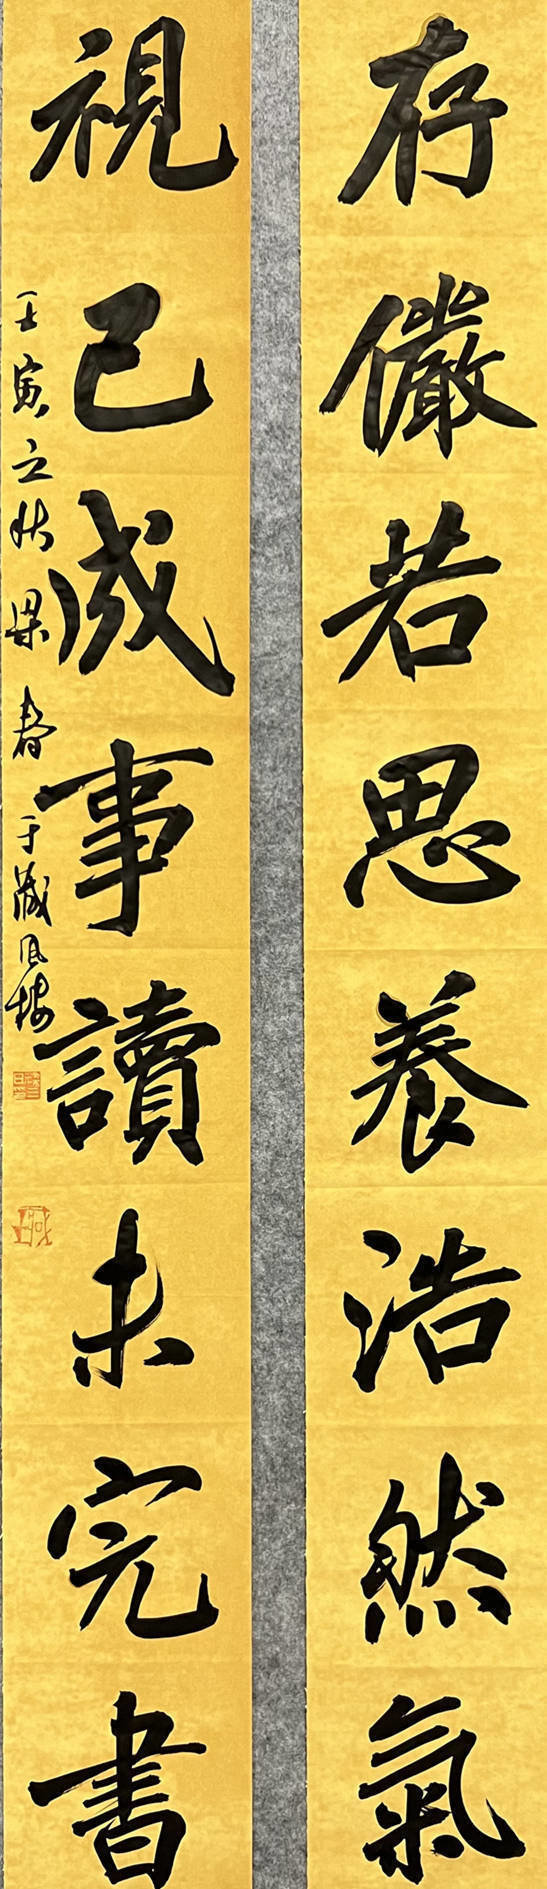 存儼若思養浩然氣
視已成事讀未完書
壬寅之秋梁春于藏風樓